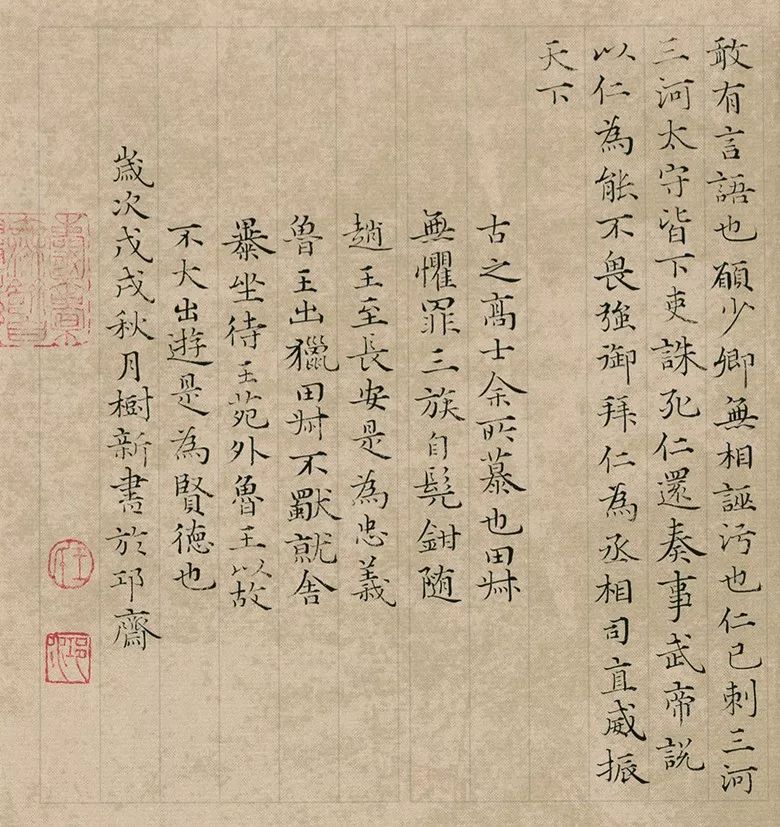 敢有言語也願少卿無相誣污也仁已刺三河
三河太守皆下吏誅死仁還奏事武帝説
以仁為能不畏強御拜仁為丞相司直威振
天下
古之高士余所慕也田叔
無懼罪三族自髡鉗随
趙王至長安是為忠義
魯王出獵田叔不獸就舍
暴坐待王苑外魯王以故
不大出遊是為賢德也
歲次戊戌秋月樹新書於邛齋